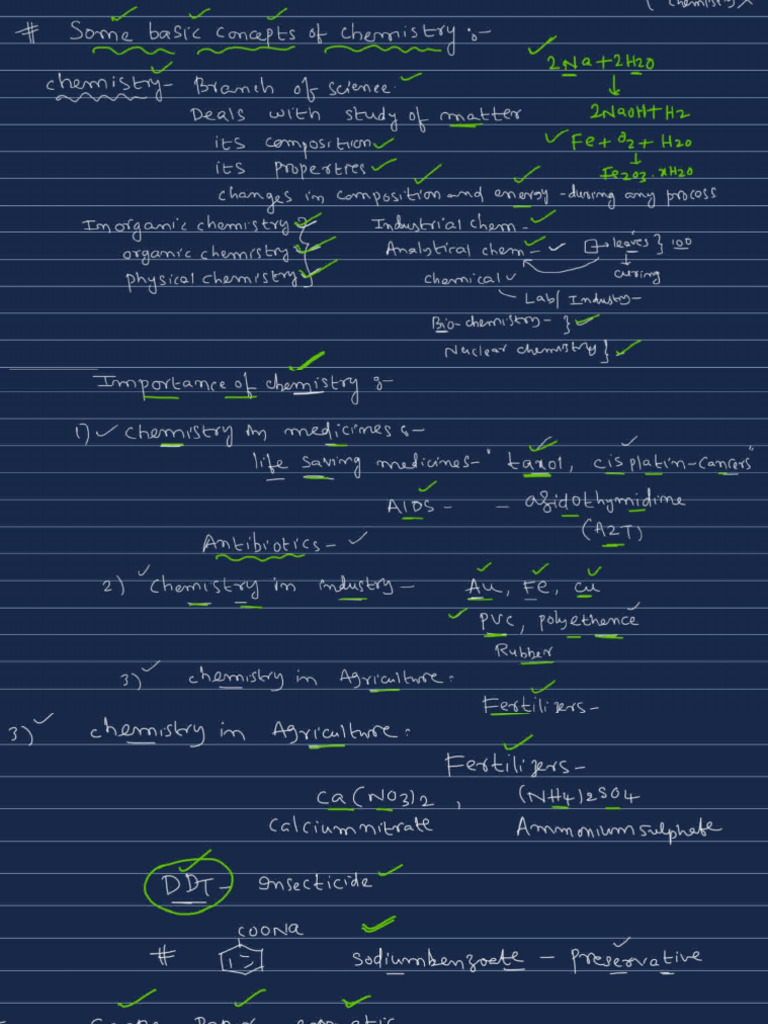 (chemistry)
# Some basic concepts of chemistry :-
2Na + 2H2O
↓
chemistry - Branch of science.
Deals with study of matter
2NaOH + H2
its composition
Fe + O2 + H2O
↓
its properties
Fe2O3 . xH2O
changes in composition and energy - during any process
Inorganic chemistry
Industrial chem -
organic chemistry
Analytical chem -
→ leaves } 100
↓
physical chemistry
chemical
curing
Lab/ Industry -
Bio-chemistry - }
Nuclear chemistry }
Importance of chemistry :-
1) chemistry in medicines :-
life saving medicines - " taxol, cisplatin - cancers"
AIDS - - azidothymidime
(AZT)
Antibiotics -
2) chemistry in industry - Au, Fe, Cu
PVC, polyethence
Rubber
3) chemistry in Agriculture :
Fertilizers -
3) chemistry in Agriculture :
Fertilizers -
Ca(NO3)2 , (NH4)2SO4
Calcium nitrate Ammonium sulphate
DDT - Insecticide
COONa
# sodium benzoate - preservative